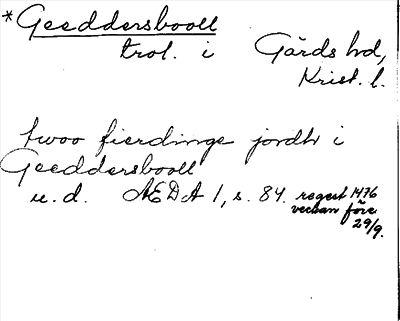 *Geeddersbooll
trol. i Gärds hd,
Krist. l.
twoo fierdinge jordh i
Geeddersbooll
u.d. ÆDA 1, s. 84. regest 1476
veckan före
29/9.